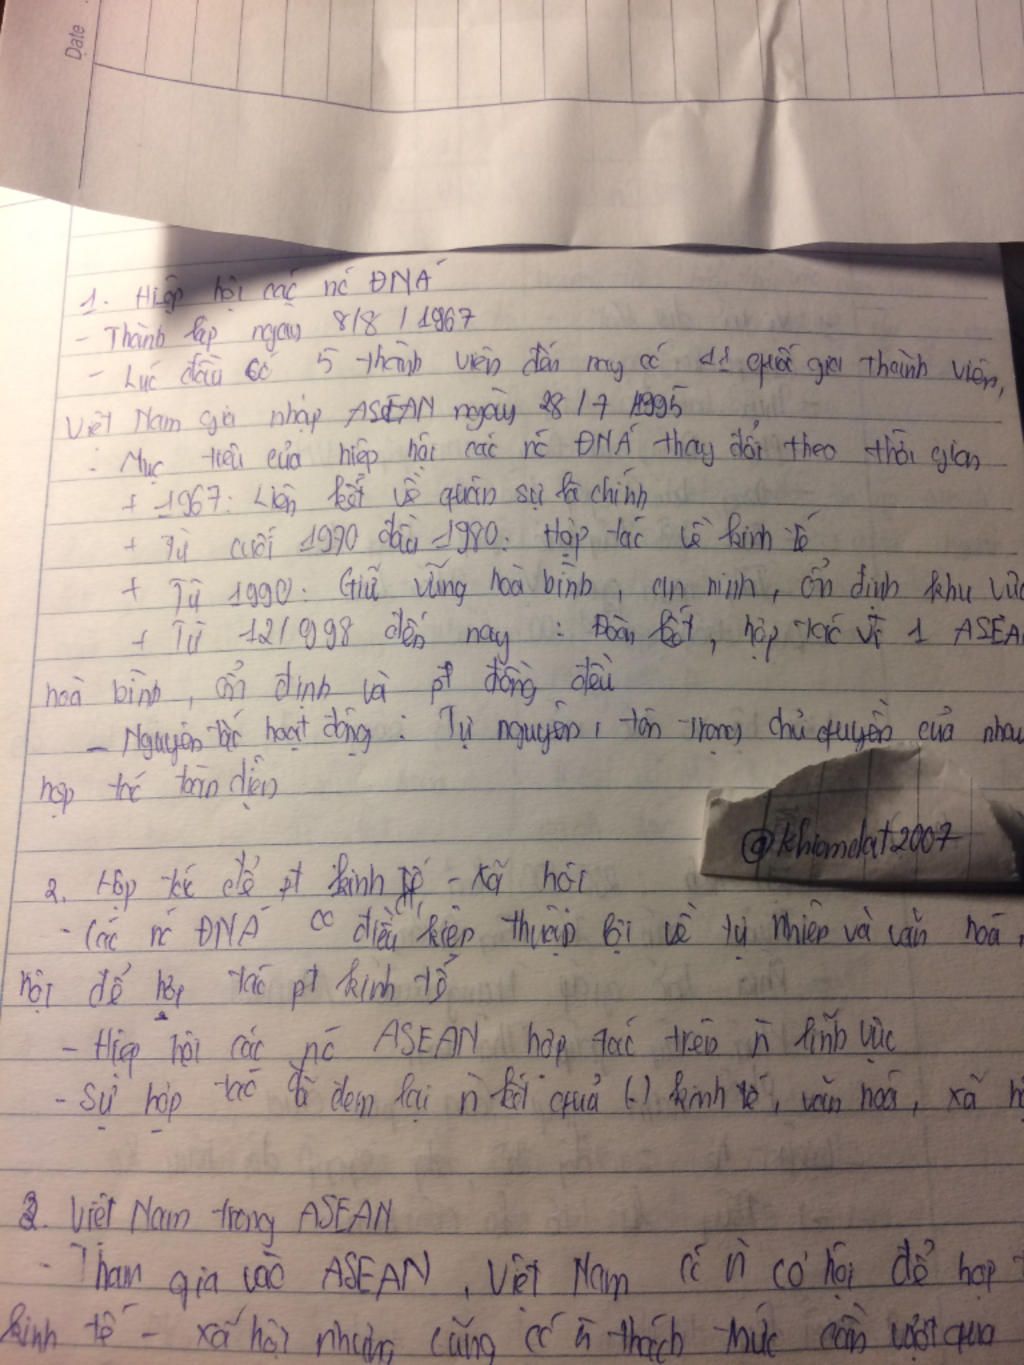 Date
1. Hiệp hội các nc ĐNÁ
- Thành lập ngày 8/8/1967
- Lúc đầu có 5 thành viên đến nay có 11 quốc gia thành viên,
Việt Nam gia nhập ASEAN ngày 28/7/1995
- Mục tiêu của hiệp hội các nc ĐNÁ thay đổi theo thời gian
+ 1967: Liên kết về quân sự là chính
+ Từ cuối 1990 đầu 1980: Hợp tác về kinh tế
+ Từ 1990: Giữ vững hoà bình, an ninh, ổn định khu vực
+ Từ 12/1998 đến nay: Đoàn kết, hợp tác vì 1 ASEAN
hoà bình, ổn định và pt đồng đều
- Nguyên tắc hoạt động: Tự nguyện, tôn trọng chủ quyền của nhau
hợp tác toàn diện
@khiomdat2007
2. Hợp tác để pt kinh tế - xã hội
- Các nc ĐNÁ có điều kiện thuận lợi về tự nhiên và văn hoá,
hội để hợp tác pt kinh tế
- Hiệp hội các nc ASEAN hợp tác trên n` lĩnh vực
- Sự hợp tác đã đem lại n` kết quả (-) kinh tế, văn hoá, xã h
3. Việt Nam trong ASEAN
- Tham gia vào ASEAN, Việt Nam có n` cơ hội để hợp
kinh tế - xã hội nhưng cũng có n` thách thức cần vượt qua